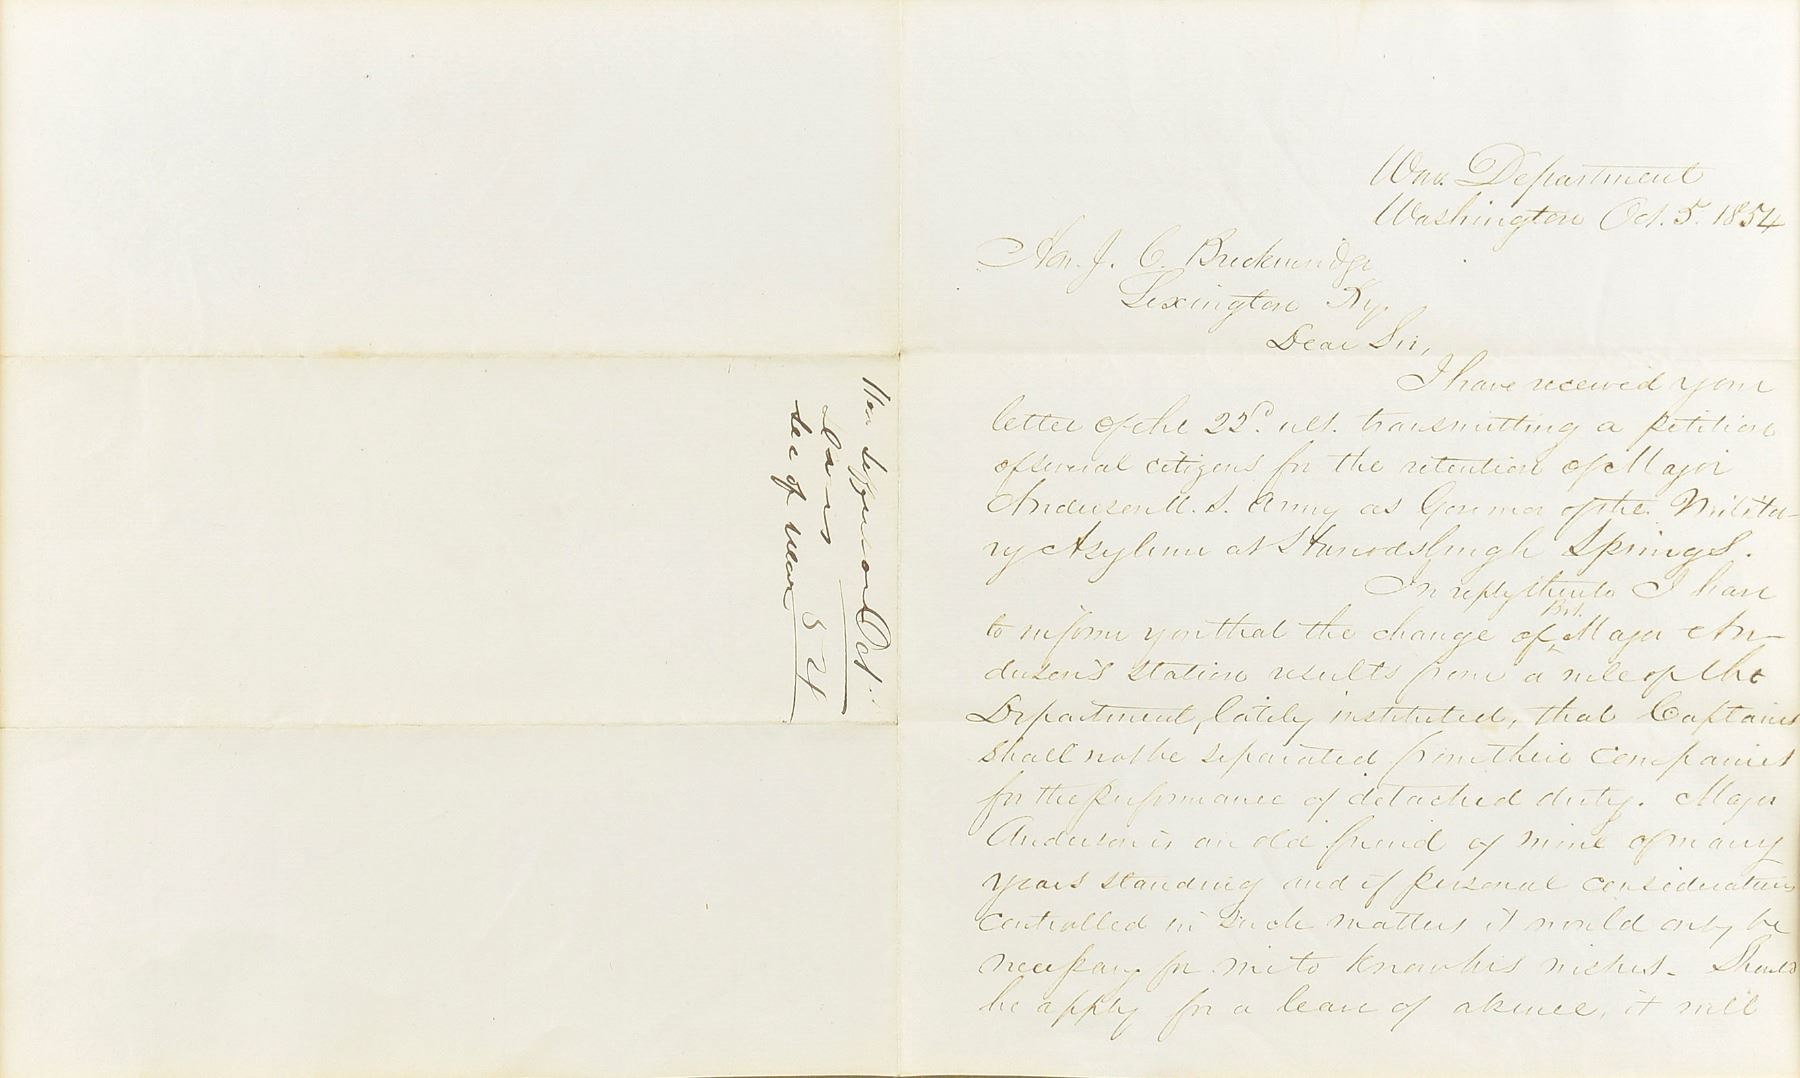 War Department
Washington Oct. 5. 1854
Hon. J. C. Breckinridge
Lexington Ky.
Dear Sir,
I have received your
letter of the 22d. ult. transmitting a petition
of several citizens for the retention of Major
Anderson U. S. Army as Governor of the Milita-
ry Asylum at Harrodsburgh Springs.
In reply thereto I have
to inform you that the change of Bvt. Major An-
derson's station results from a rule of the
Department, lately instituted, that Captains
shall not be separated from their companies
for the performance of detached duty. Major
Anderson is an old friend of mine of many
years standing and if personal considerations
controlled in such matters it would only be
necessary for me to know his wishes - Should
he apply for a leave of absence, it will
Hon Jefferson Oct.
Davis
Sec of War 5 54